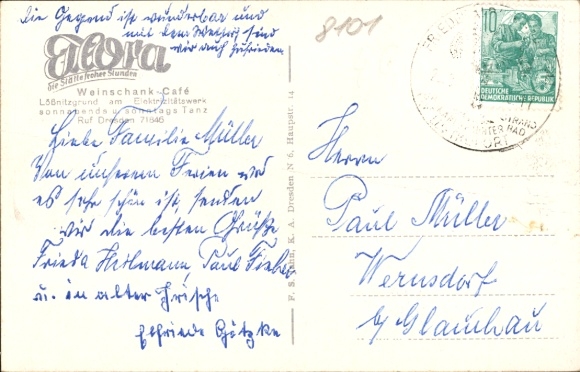 die Gegend ist wunderbar und
mit dem Wetter sind
wir auch zufrieden
8101
Flora
die Stätte froher Stunden
Weinschank-Café
Lößnitzgrund am Elektrizitätswerk
sonnabends u. sonntags Tanz
Ruf Dresden 71646
Liebe Familie Müller
Von unseren Ferien wo
es sehr schön ist, senden
wir die besten Grüße
Frieda Paul
u. in alter Frische
Elfriede Götzke
F. S. Jahn, K. A. Dresden N 6, Haupstr. 14
10
DEUTSCHE
DEMOKRATISCHE REPUBLIK
Herrn
Paul Müller
Wernsdorf
b/ Glauchau